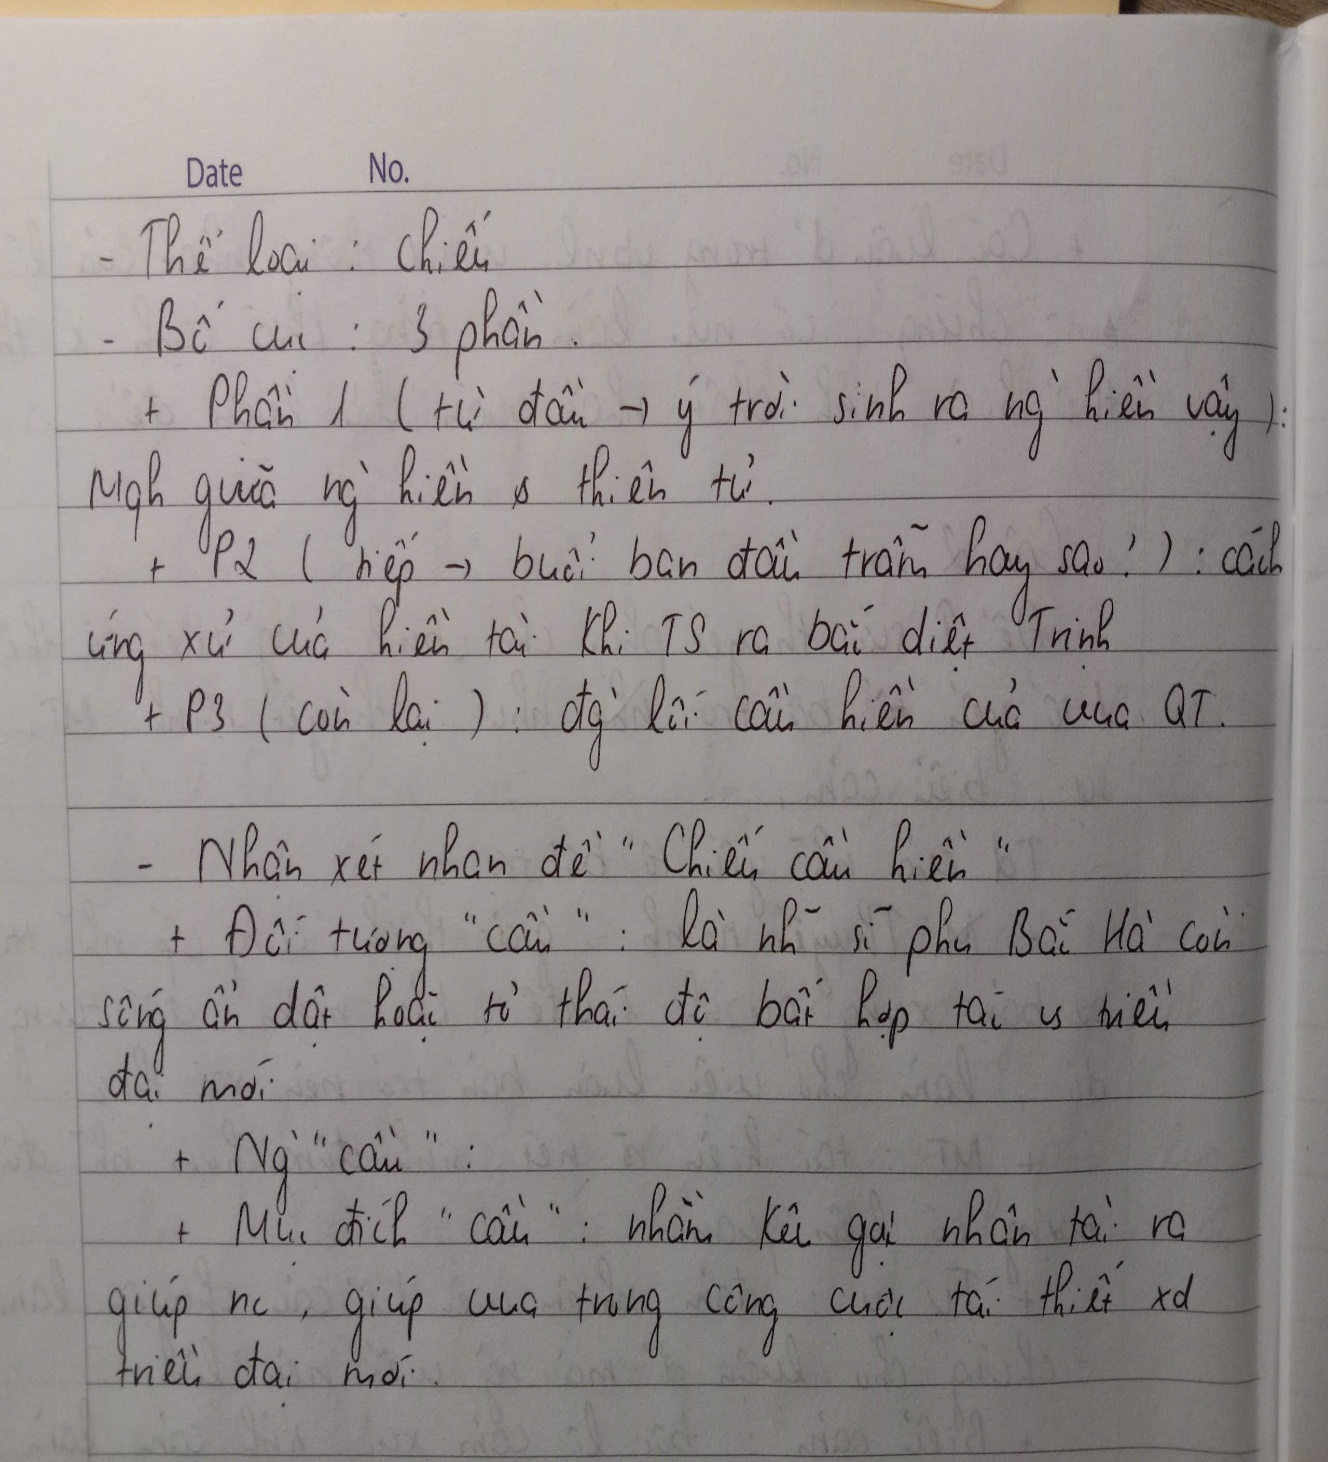 Date No.
- Thể loại : Chiếu
- Bố cục : 3 phần.
+ Phần 1 ( từ đầu → ý trời sinh ra ng` hiền vậy ) :
Mqh giữa ng` hiền & thiên tử.
+ P2 ( tiếp → buổi ban đầu trẫm hay sao ? ) : cách
ứng xử của hiền tài khi TS ra bắc diệt Trịnh
+ P3 ( còn lại ) : đg` lối cầu hiền của vua QT.
- Nhận xét nhan đề " Chiếu cầu hiền "
+ Đối tượng " cầu " : là nh~ sĩ phu Bắc Hà còn
sống ẩn dật hoặc tỏ thái độ bất hợp tác vs triều
đại mới
+ Ng` " cầu " :
+ Mục đích " cầu " : nhằm kêu gọi nhân tài ra
giúp nc , giúp vua trong công cuộc tái thiết xd
triều đại mới.